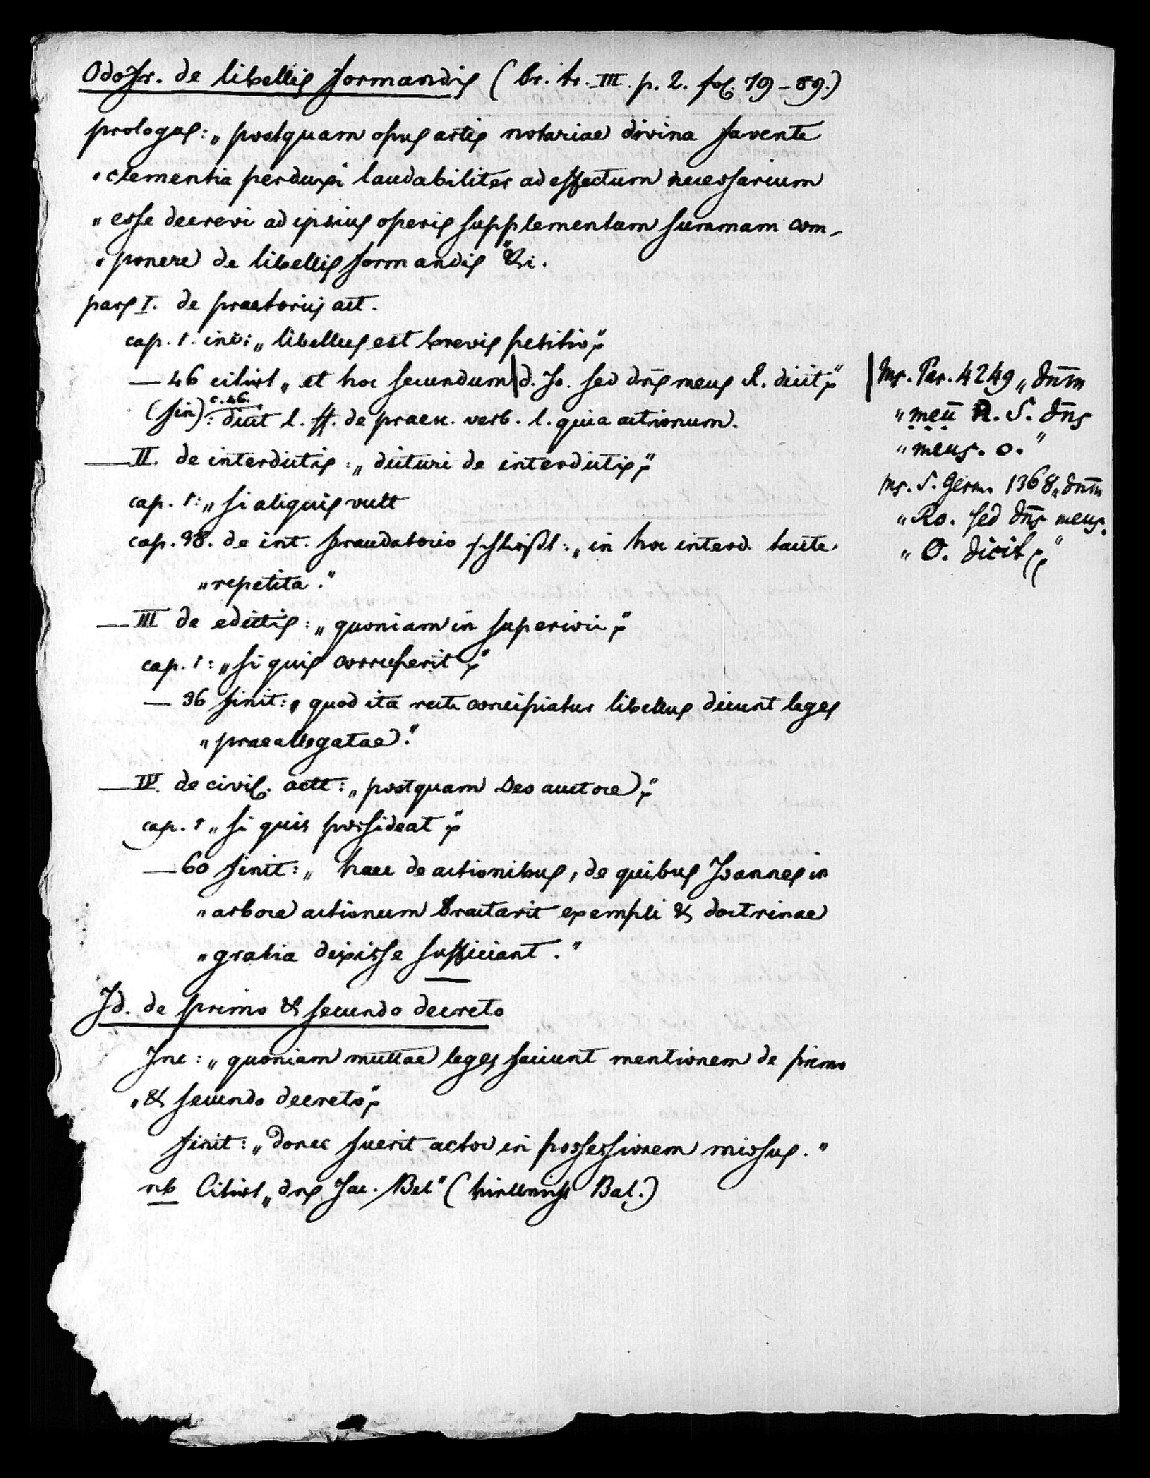 Odofr. de libellis formandis (br. tr. III. p. 2. fol. 79–89.)
prologus: „postquam opus artis notariae divina favente
„clementia perduxi laudabiliter ad effectum necessarium
„esse decrevi ad ipsius operis supplementum summam com-
„ponere de libellis formandis" &c.
pars I. de praetoriis act.
cap. 1. inc: „libellus est brevis petitio"
— 46 citirt „et hoc secundum | d. Jo. sed dn̄s meus R. dicit"
(fin): c. 46. dicit l. ff. de praesc. verb. l. quia actionum.
— II. de interdictis: „dicturi de interdictis"
cap. 1: „si aliquis vult
cap. 38. de int. fraudatorio schließt: „in hoc interd. taute
„repetita."
— III de edictis: „quoniam in superiori"
cap. 1: „si quis corruperit"
— 36 finit: „quod ita recte concipiatur libellus dicunt leges
„praeallegatae."
— IV. de civil. actt: „postquam Deo auctore"
cap. 1 „si quis possideat"
— 60 finit: „haec de actionibus, de quibus Joannes in
„arbore actionum tractavit exempli & doctrinae
„gratia dixisse sufficiant."
Id. de primo & secundo decreto
Inc: „quoniam multae leges faciunt mentionem de primo
„& secundo decreto"
finit: „donec fuerit actor in possessionem missus."
nb Citirt „dn̄s Jac. Bal" ( Bal.)
| Ms. Par. 4249 „dn̄m
„meū R. S. dn̄s
„meus. o."
Ms. S. Germ. 1368 „dn̄m
„Ro. sed dn̄s meus.
„O. dicit"